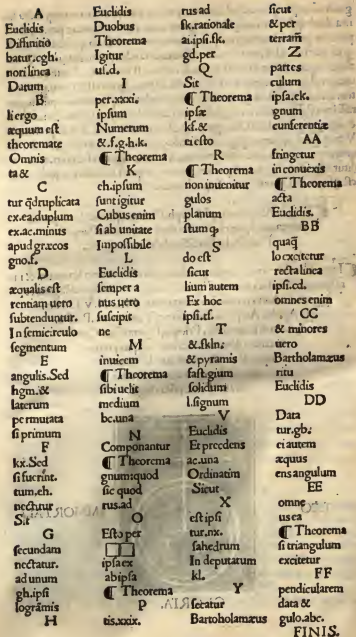 A
Euclidis
Diffinitio
batur.cgh.
nori linea
Datum
B
li ergo
æquum est
theoremate
Omnis
ta &
C
tur q̃druplicata
ex.ea.duplum
ex.ac.minus
apud græcos
gno.f.
D
æqualis est
rentiam uero
subtenduntur.
In semicirculo
segmentum
E
angulis.Sed
hgm.&
laterum
permutata
si primum
F
kx.Sed
si fuerint.
tum,eh.
nectitur
Sit
G
secundam
nectatur.
ad unum
gh.ipsi
logrāmis
H
Euclidis
Duobus
Theorema
Igitur
us.d.
I
per.xxxi.
ipsum
Numerum
&.f.g.h.k.
¶ Theorema
K
eh.ipsum
sunt igitur
Cubus enim
si ab unitate
Impossibile
L
Euclidis
semper a
nus uero
suscipit
ne
M
inuicem
¶ Theorema
sibi uelit
medium
bc.una
N
Componantur
¶ Theorema
gnum:quod
sic quod
rus.ad
O
Esto per
ipsa ex
ab ipsa
¶ Theorema
P
tis.xxix.
rus ad
sk.rationale
ai.ipsi.sk.
gd.per
Q
Sit
¶ Theorema
ipsæ
kf.&
ei esto
R
¶ Theorema
non inuenitur
gulos
planum
stum q;
S
do est
sicut
lium autem
Ex hoc
ipsi.ef.
T
&.skln:
& pyramis
fastigium
solidum
l.signum
V
Euclidis
Et præcedens
ac.una
Ordinatim
Sicut
X
est ipsi
tur.nx.
sahedrum
In deputatum
kl.
Y
secatur
Bartholamæus
sicut
& per
terram
Z
partes
culum
ipsa.ek.
gnum
cunferentiæ
AA
fringetur
in conuexis
¶ Theorema
acta
Euclidis.
BB
quaq;
lo excitetur
recta linea
ipsi.cd.
omnes enim
CC
& minores
uero
Bartholamæus
ritu
Euclidis
DD
Data
tur.gb:
ei autem
æquus
ens angulum
EE
omne
us ea
¶ Theorema
si triangulum
excitetur
FF
pendicularem
data &
gulo.abc.
FINIS.